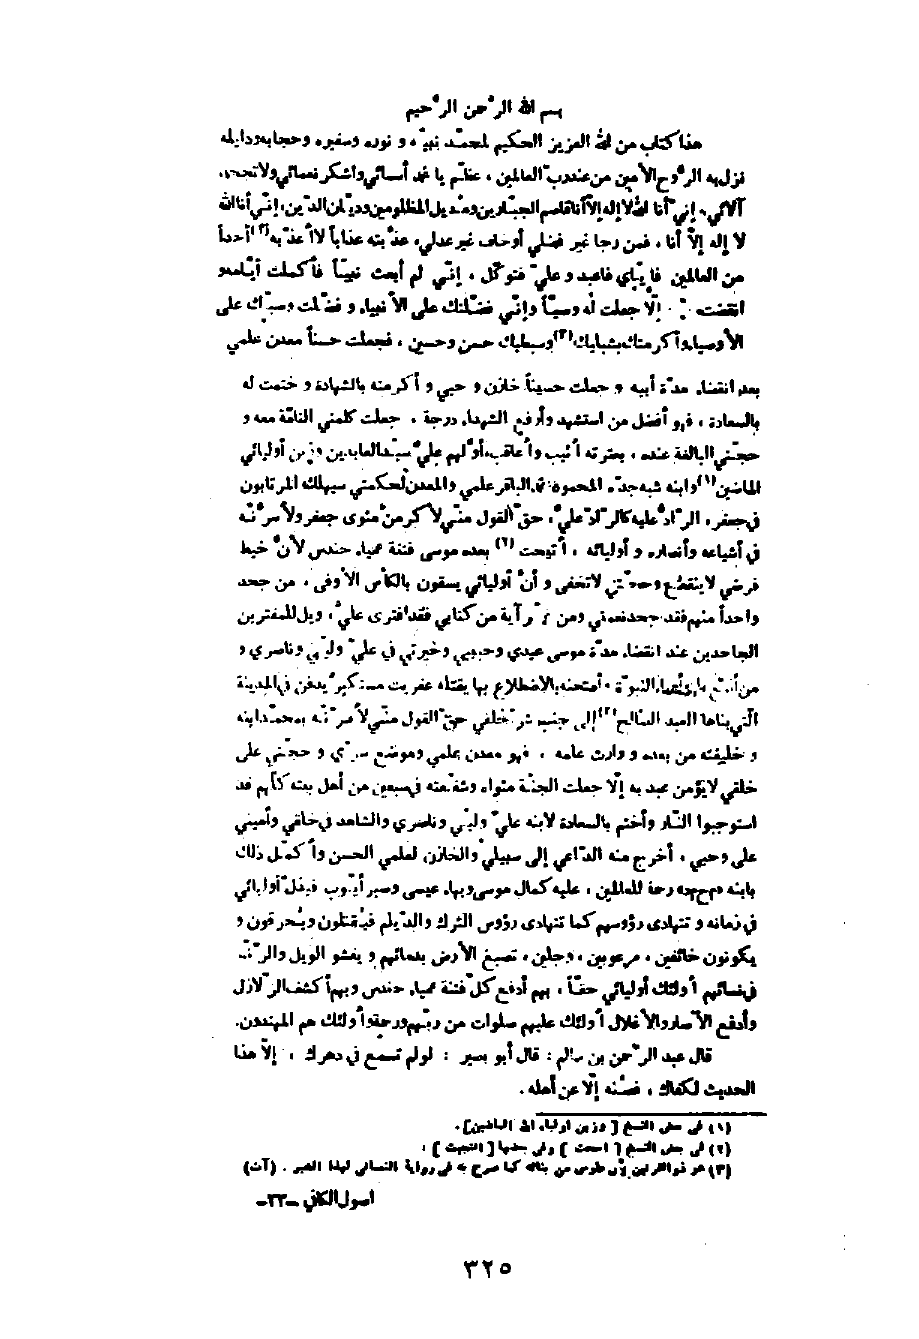 بسم الله الرّحمن الرّحيم
هذا كتاب من الله العزيز الحكيم لمحمّد نبيّه و نوره وسفيره وحجابه ودليله
نزل به الرّوح الأمين من عند ربّ العالمين ، عظّم يا محمّد أسمائي واشكر نعمائي ولاتجحد
آلائي ، إنّي أنا الله لا إله إلّا أنا قاصم الجبّارين ومديل المظلومين وديّان الدّين، إنّي أنا الله
لا إله إلّا أنا ، فمن رجا غير فضلي أوخاف غير عدلي، عذّبته عذاباً لا أعذّبه أحداً
من العالمين فإيّاي فاعبد وعليّ فتوكّل ، إنّي لم أبعث نبيّاً فأكملت أيّامه و
انقضت إلّا جعلت له وصيّاً وإنّي فضّلتك على الأنبياء و فضّلت وصيّك على
الأوصياء وأكرمتك بشبليك وسبطيك حسن وحسين ، فجعلت حسناً معدن علمي
بعد انقضاء مدّة أبيه و جعلت حسيناً خازن و حيي و أكرمته بالشهادة و ختمت له
بالسعادة ، فهو أفضل من استشهد وأرفع الشهداء درجة ، جعلت كلمتي التامّة معه و
حجّتي البالغة عنده ، بعترته أثيب وأعاقب، أوّلهم عليّ سيّد العابدين وزين أوليائي
الماضين(١) وابنه شبه جدّه المحمود محمّد الباقر علمي والمعدن لحكمتي سيهلك المرتابون
في جعفر، الرّادّ عليه كالرّادّ عليّ، حقّ القول منّي لأكرمنّ مثوى جعفر ولأسرّنّه
في أشياعه وأنصاره و أوليائه ، أتيحت (٢) بعده موسى فتنة عمياء حندس لأنّ خيط
فرضي لاينقطع وحجّتي لاتخفى و أنّ أوليائي يسقون بالكأس الأوفى ، من جحد
واحداً منهم فقد جحد نعمتي ومن غيّر آية من كتابي فقد افترى عليّ، ويل للمفترين
الجاحدين عند انقضاء مدّة موسى عبدي وحبيبي وخيرتي في عليّ وليّي وناصري و
من أضع عليه أعباء النبوّة وأمتحنه بالاضطلاع بها يقتله عفريت مستكبر يدفن في المدينة
الّتي بناها العبد الصّالح(٣) إلى جنب شرّ خلقي حقّ القول منّي لأسرّنّه بمحمّد ابنه
و خليفته من بعده و وارث علمه ، فهو معدن علمي وموضع سرّي و حجّتي على
خلقي لايؤمن عبد به إلّا جعلت الجنّة مثواه وشفّعته في سبعين من أهل بيته كلّهم قد
استوجبوا النّار وأختم بالسعادة لابنه عليّ وليّي وناصري والشاهد في خلقي وأميني
على وحيي ، أخرج منه الدّاعي إلى سبيلي والخازن لعلمي الحسن وأكمل ذلك
بابنه «م ح م د» رحمة للعالمين ، عليه كمال موسى وبهاء عيسى وصبر أيّوب فيذلّ أوليائي
في زمانه و تتهادى رؤوسهم كما تتهادى رؤوس الترك والدّيلم فيقتلون ويحرقون و
يكونون خائفين ، مرعوبين ، وجلين ، تصبغ الأرض بدمائهم و يفشو الويل والرّنّة
في نسائهم أولئك أوليائي حقّاً ، بهم أدفع كلّ فتنة عمياء حندس وبهم أكشف الزّلازل
وأدفع الآصار والأغلال أولئك عليهم صلوات من ربّهم ورحمة وأولئك هم المهتدون.
قال عبد الرّحمن بن سالم : قال أبو بصير : لولم تسمع في دهرك ، إلّا هذا
الحديث لكفاك ، فصنه إلّا عن أهله .
(١) في بعض النسخ [ وزين اولياء الله الماضين] .
(٢) في بعض النسخ [ ابيحت ] وفي بعضها [ انتجبت ] .
(٣) هو ذوالقرنين لأن طوس من بنائه كما صرح به في رواية النعماني لهذا الخبر . (آت)
اصول الكافي -٣٣-
٣٢٥